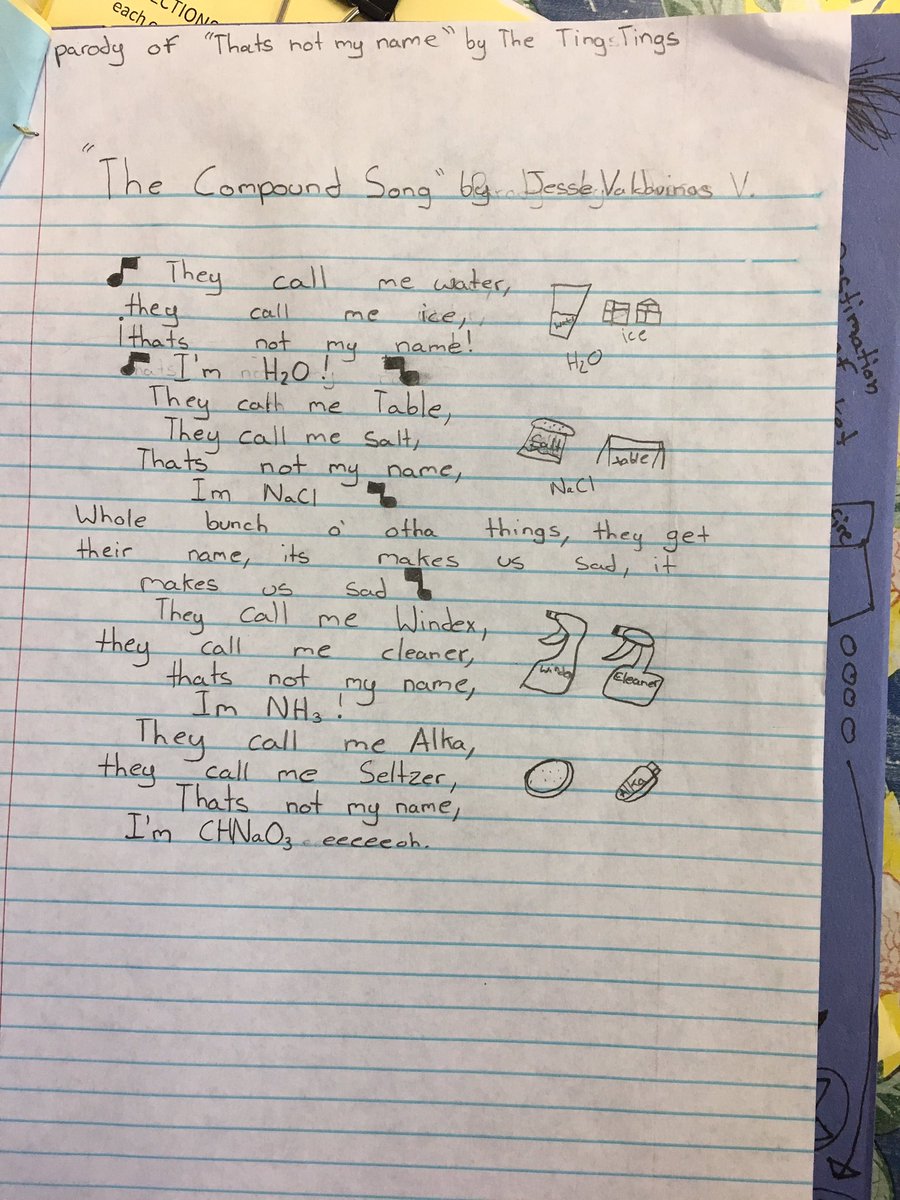 CTIONS
each
parody of "Thats not my name" by The Ting Tings
"The Compound Song" by Jesse V.
They call me water,
they call me ice,
thats not my name!
I'm H₂O!
ice
H₂O
They call me Table,
They call me Salt,
Thats not my name,
Im NaCl
Salt
table
NaCl
Whole bunch o' otha things, they get
their name, its makes us sad, it
makes us sad
They call me Windex,
they call me cleaner,
thats not my name,
Im NH₃!
Cleaner
They call me Alka,
they call me Seltzer,
Thats not my name,
I'm CHNaO₃ eeeeeoh.
Alka